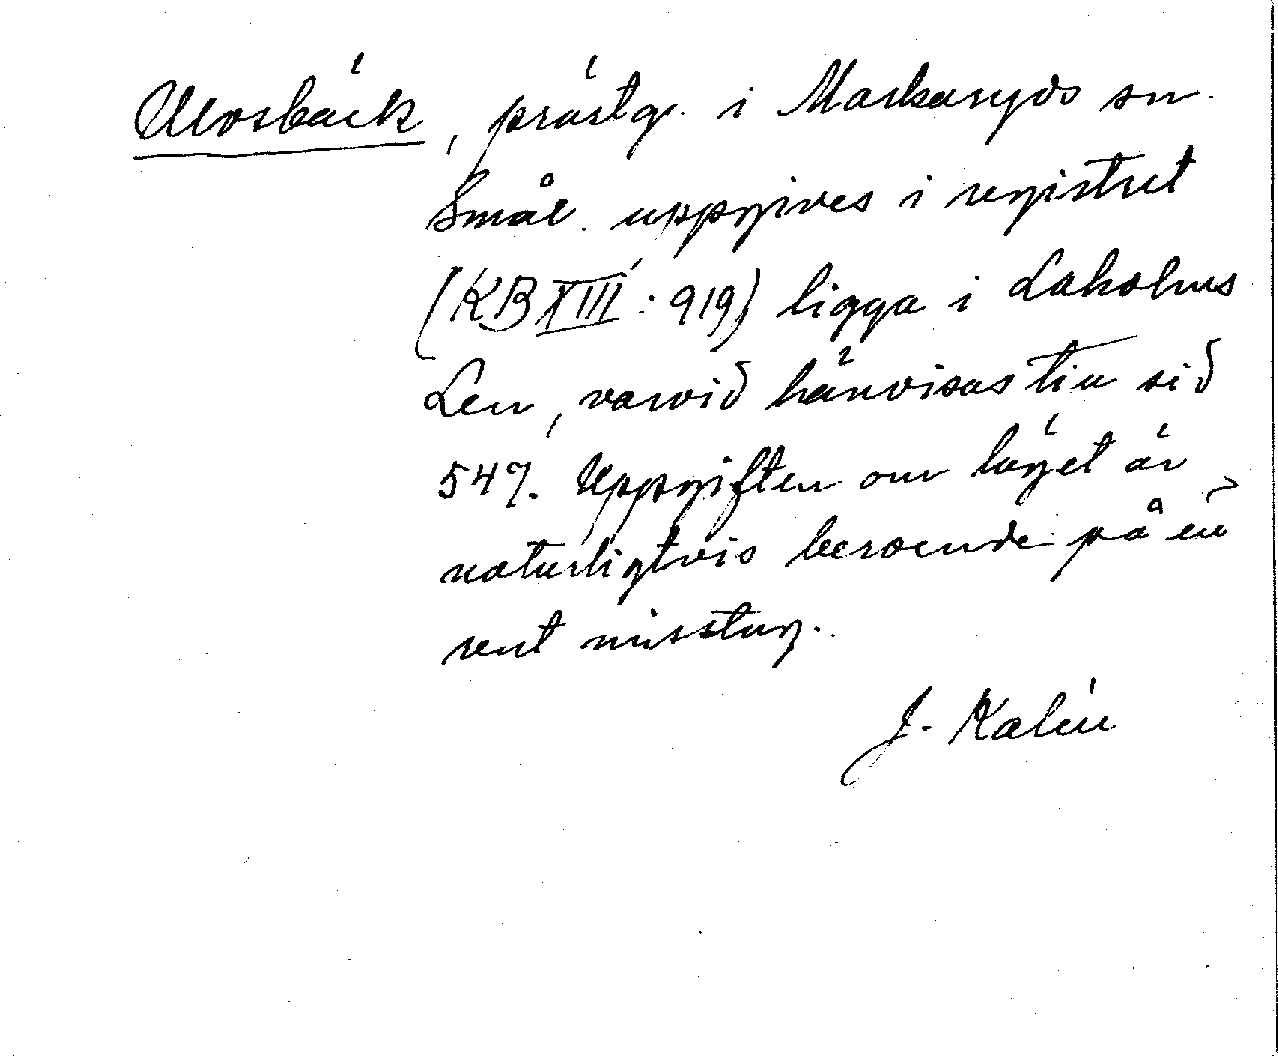 Ulvsbäck, prästg. i Markaryds sn.
Smål. uppgives i registret
(KB XIII: 919) ligga i Laholms
Len, varvid hänvisas till sid
547. Uppgiften om läget är
naturligtvis beroende på ett
rent misstag.
J. Kalén